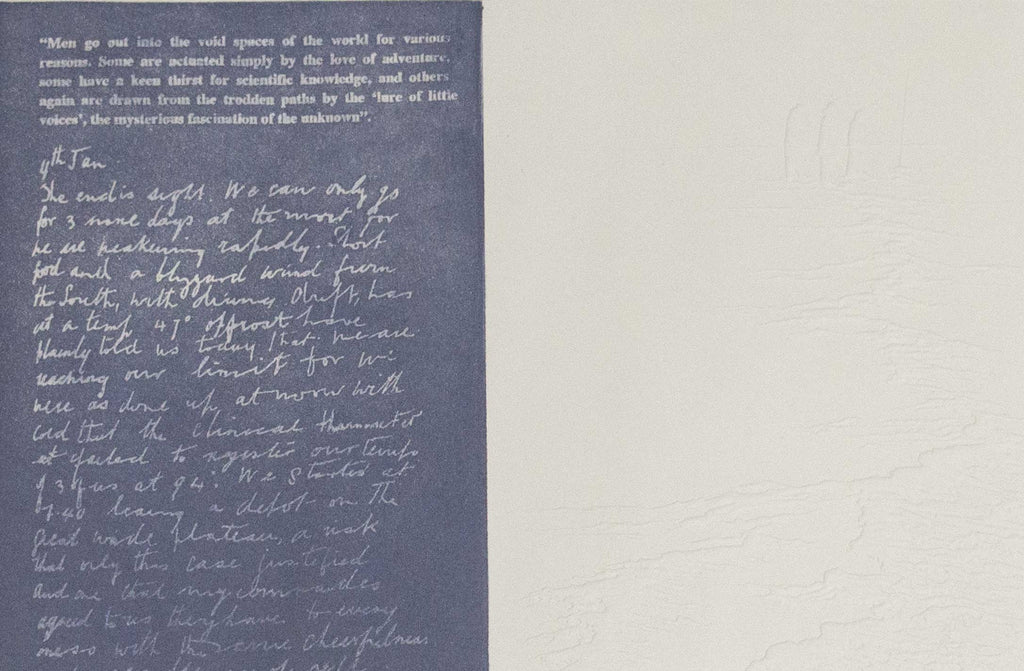 “Men go out into the void spaces of the world for various
reasons. Some are actuated simply by the love of adventure,
some have a keen thirst for scientific knowledge, and others
again are drawn from the trodden paths by the ‘lure of little
voices’, the mysterious fascination of the unknown”.
4th Jan
The end is sight. We can only go
for 3 more days at the most for
we are weakening rapidly. Short
food and a blizzard wind from
the South, with driving drift, has
at a temp 47° of frost have
plainly told us today that we are
reaching our limit for we
were so done up, at noon with
cold that the clinical thermometer
failed to register our temps
of 3 of us at 94°. We started at
7.40 leaving a depot on the
great wide plateau, a risk
that only this case justified
and one that my comrades
agreed to as they have to every
one so with the same cheerfulness